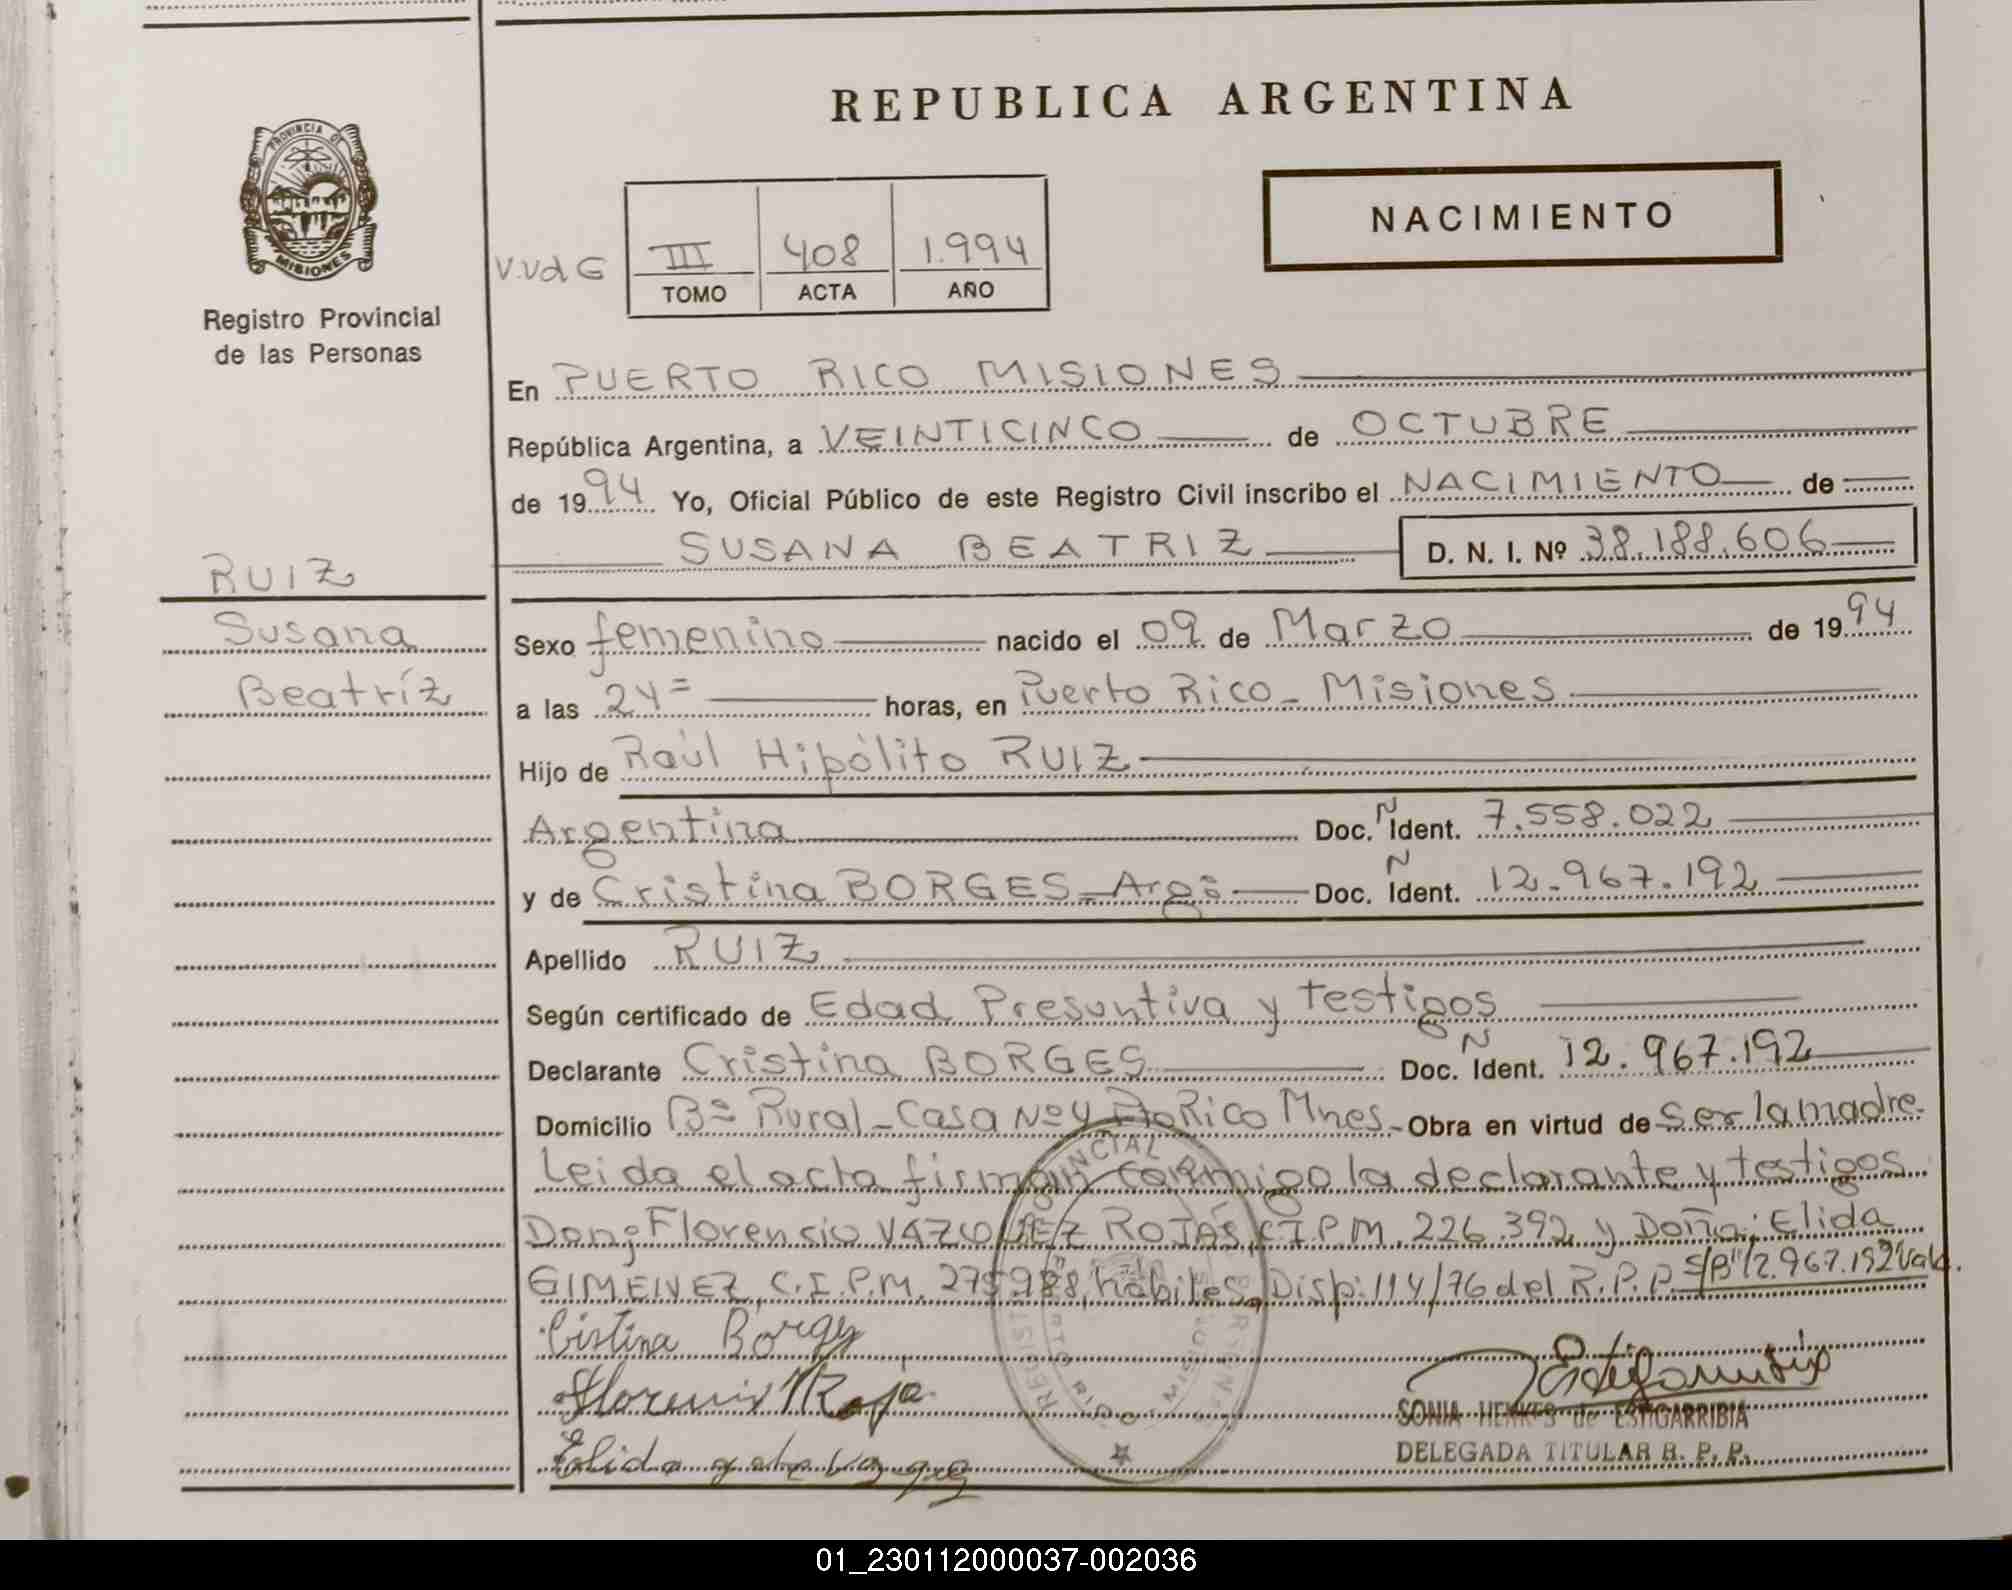 REPUBLICA ARGENTINA
PROVINCIA DE
MISIONES
Registro Provincial
de las Personas
NACIMIENTO
V.VdG
III 408 1.994
TOMO ACTA AÑO
En PUERTO RICO MISIONES
República Argentina, a VEINTICINCO de OCTUBRE
de 1994 Yo, Oficial Público de este Registro Civil inscribo el NACIMIENTO de
SUSANA BEATRIZ D. N. I. Nº 38.188.606
RUIZ
Susana
Beatríz
Sexo femenino nacido el 09 de Marzo de 1994
a las 24= horas, en Puerto Rico - Misiones
Hijo de Raúl Hipólito RUIZ
Argentina Doc. Ñ Ident. 7.558.022
y de Cristina BORGES - Arg. Doc. Ñ Ident. 12.967.192
Apellido RUIZ
Según certificado de Edad Presuntiva y testigos
Declarante Cristina BORGES Doc. Ñ Ident. 12.967.192
Domicilio Bº Rural - Casa Nº4 Pto Rico Mnes. Obra en virtud de Ser la madre.
Leida el acta firman conmigo la declarante y testigos
Don; Florensio VAZQUEZ ROJAS, C.I.P.M. 226.392 y Doña; Elida
GIMENEZ, C.I.P.M. 275988, hábiles. Disp: 114/76 del R.P.P. S/B "12.967.192 Vale.
Cistina Borges
Elida
SONIA HENKES de ESTIGARRIBIA
DELEGADA TITULAR R. P. P.
01_230112000037-002036